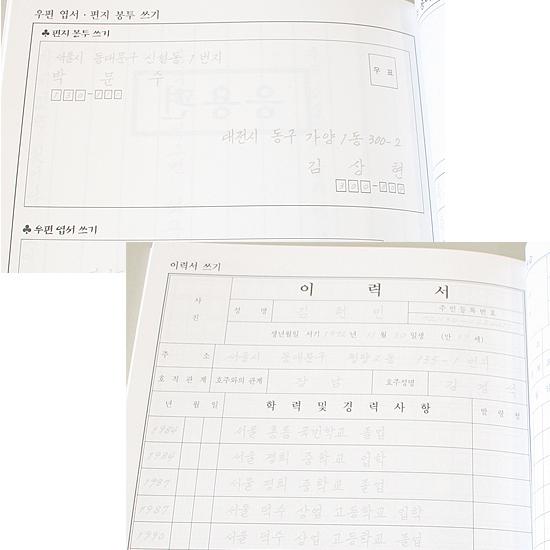 우편 엽서 · 편지 봉투 쓰기
♣ 편지 봉투 쓰기
서울시 동대문구 신설동 1번지
박 문 주
130-110
우표
대전시 동구 가양 1동 300-2
김 상 현
300-200
♣ 우편 엽서 쓰기
이력서 쓰기
사진
이 력 서
성 명
김 현 민
주민등록번호
생년월일 서기 19 년 11월 20일생 (만 세)
주 소
서울시 동대문구 135-1 번지
호적관계
호주와의 관계
장 남
호주성명
김
년 월 일
학 력 및 경 력 사 항
발 령 청
1984
서울 홍릉 국민학교 졸업
1984
서울 경희 중학교 입학
1987
서울 경희 중학교 졸업
1987
서울 덕수 상업 고등학교 입학
1990
서울 덕수 상업 고등학교 졸업